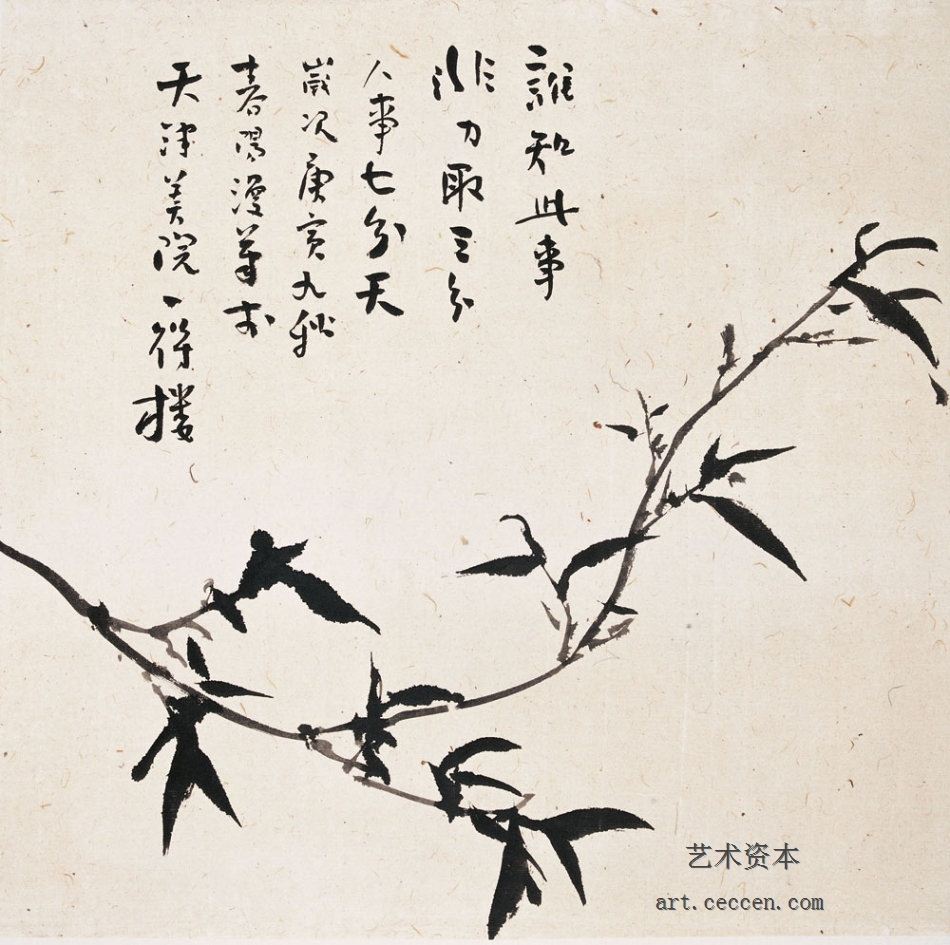 誰知此事
非力取三分
人事七分天
歲次庚寅九秋
春陽漫筆於
天津美院一得樓
艺术资本
art.ceccen.com